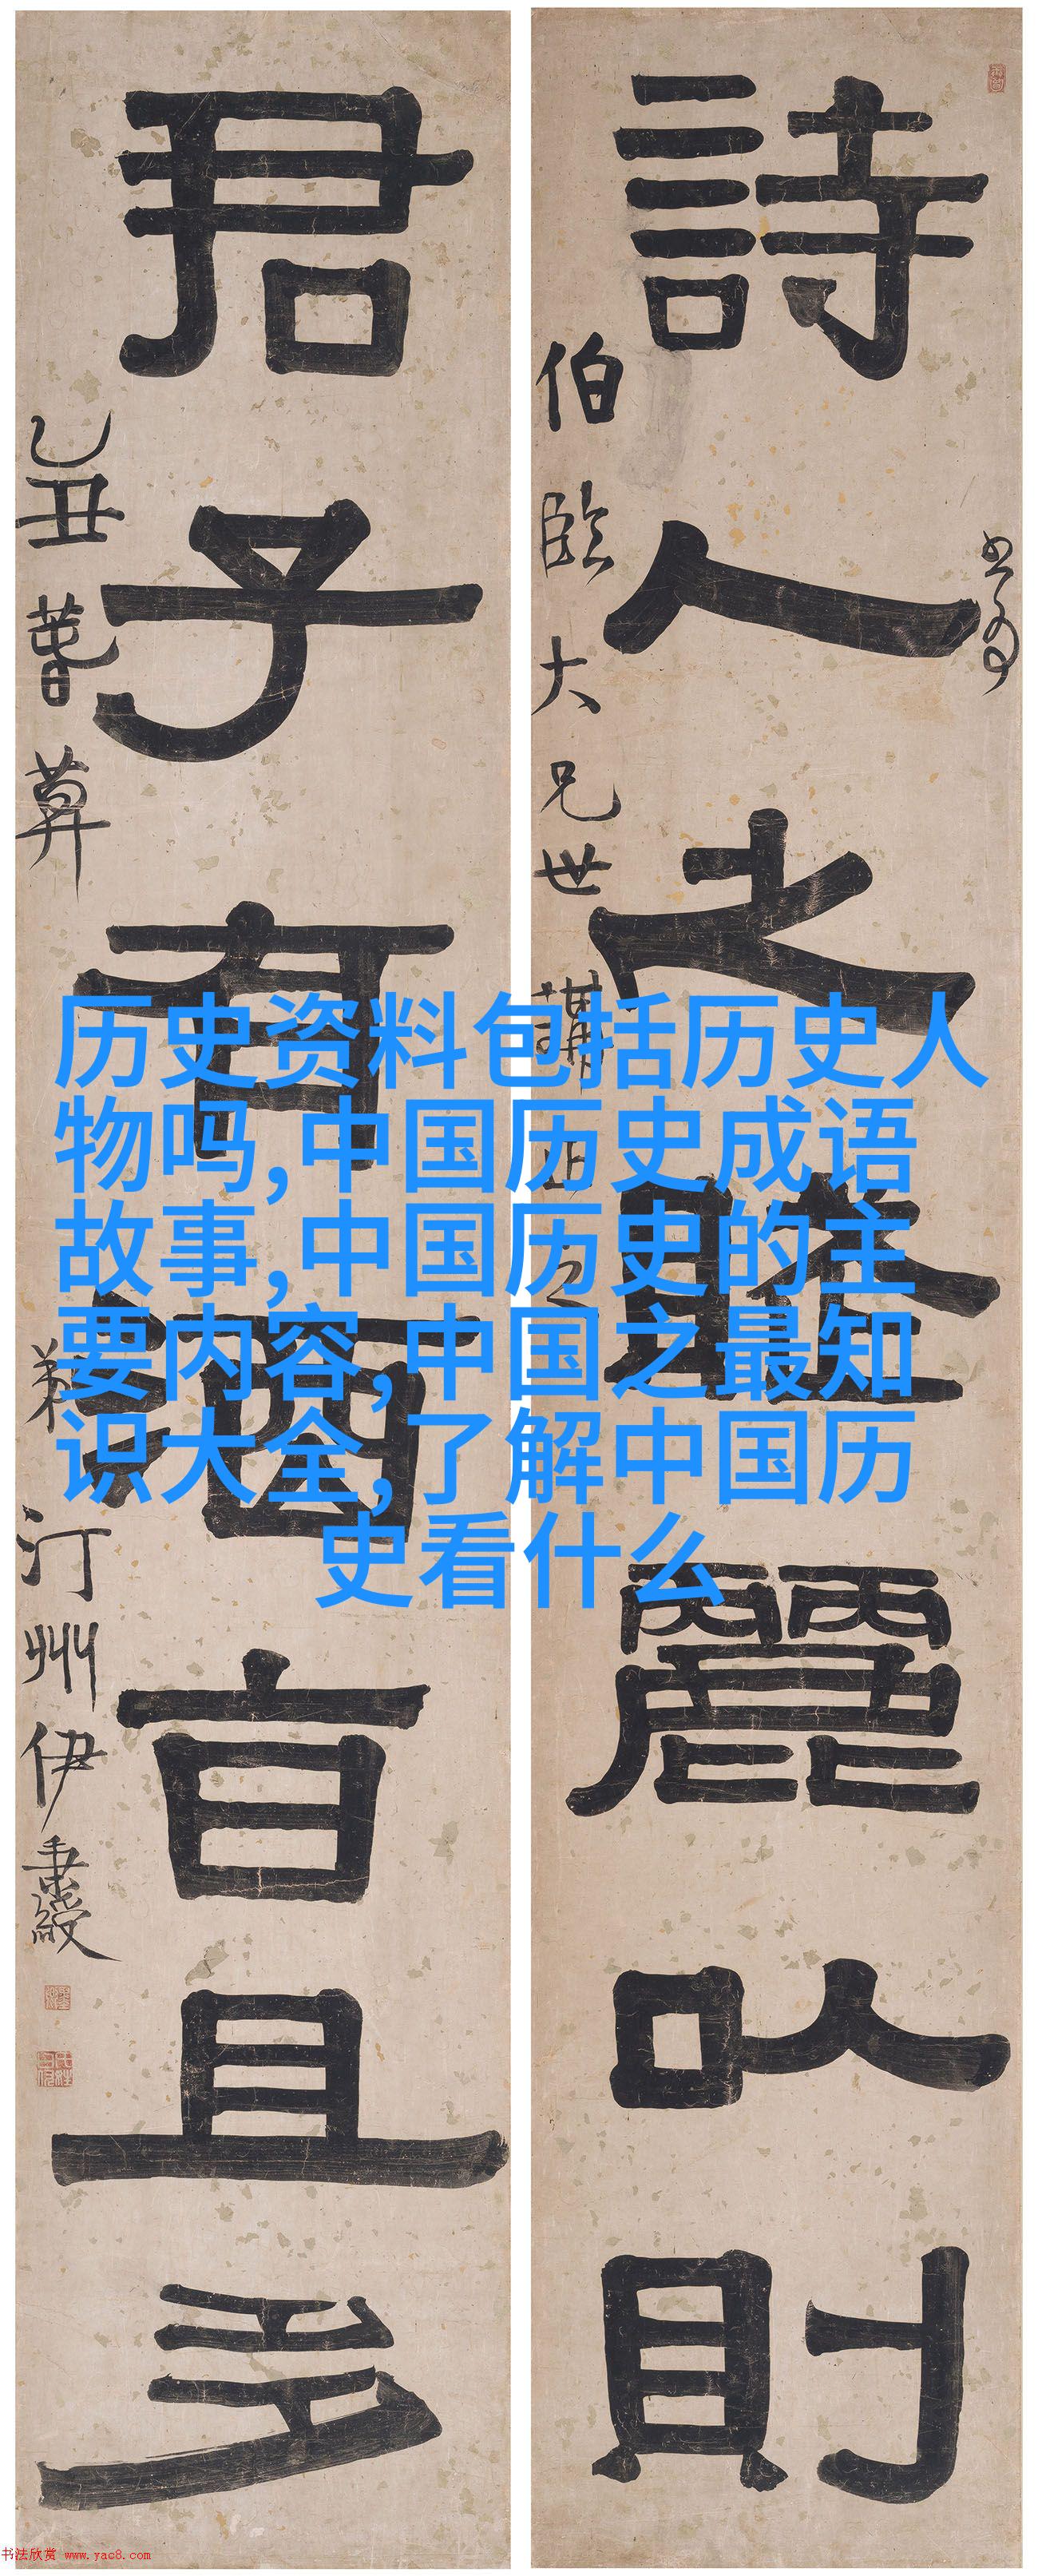 詩人之㔺麗以則
书为
伯臨大兄世講正之
君子有酒旨且多
乙丑暮春
弟汀州伊秉綬
历史资料包括历史人
物吗,中国历史成语
故事,中国历史的主
要内容,中国之最知
识大全,了解中国历
史看什么
书法欣赏 www.yac8.com